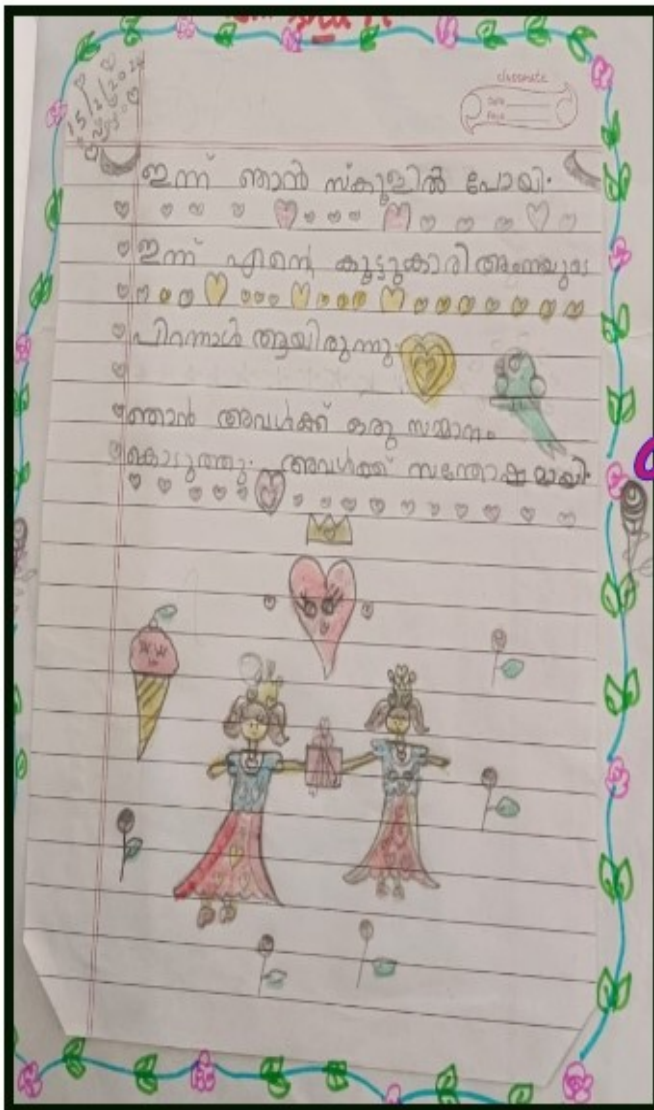 classmate
Date
Page
15/2/2024
ഇന്ന് ഞാൻ സ്കൂളിൽ പോയി.
ഇന്ന് എന്റെ കൂട്ടുകാരി അംനയുടെ
പിറന്നാൾ ആയിരുന്നു.
ഞാൻ അവൾക്ക് ഒരു സമ്മാനം
കൊടുത്തു. അവൾക്ക് സന്തോഷമായി.